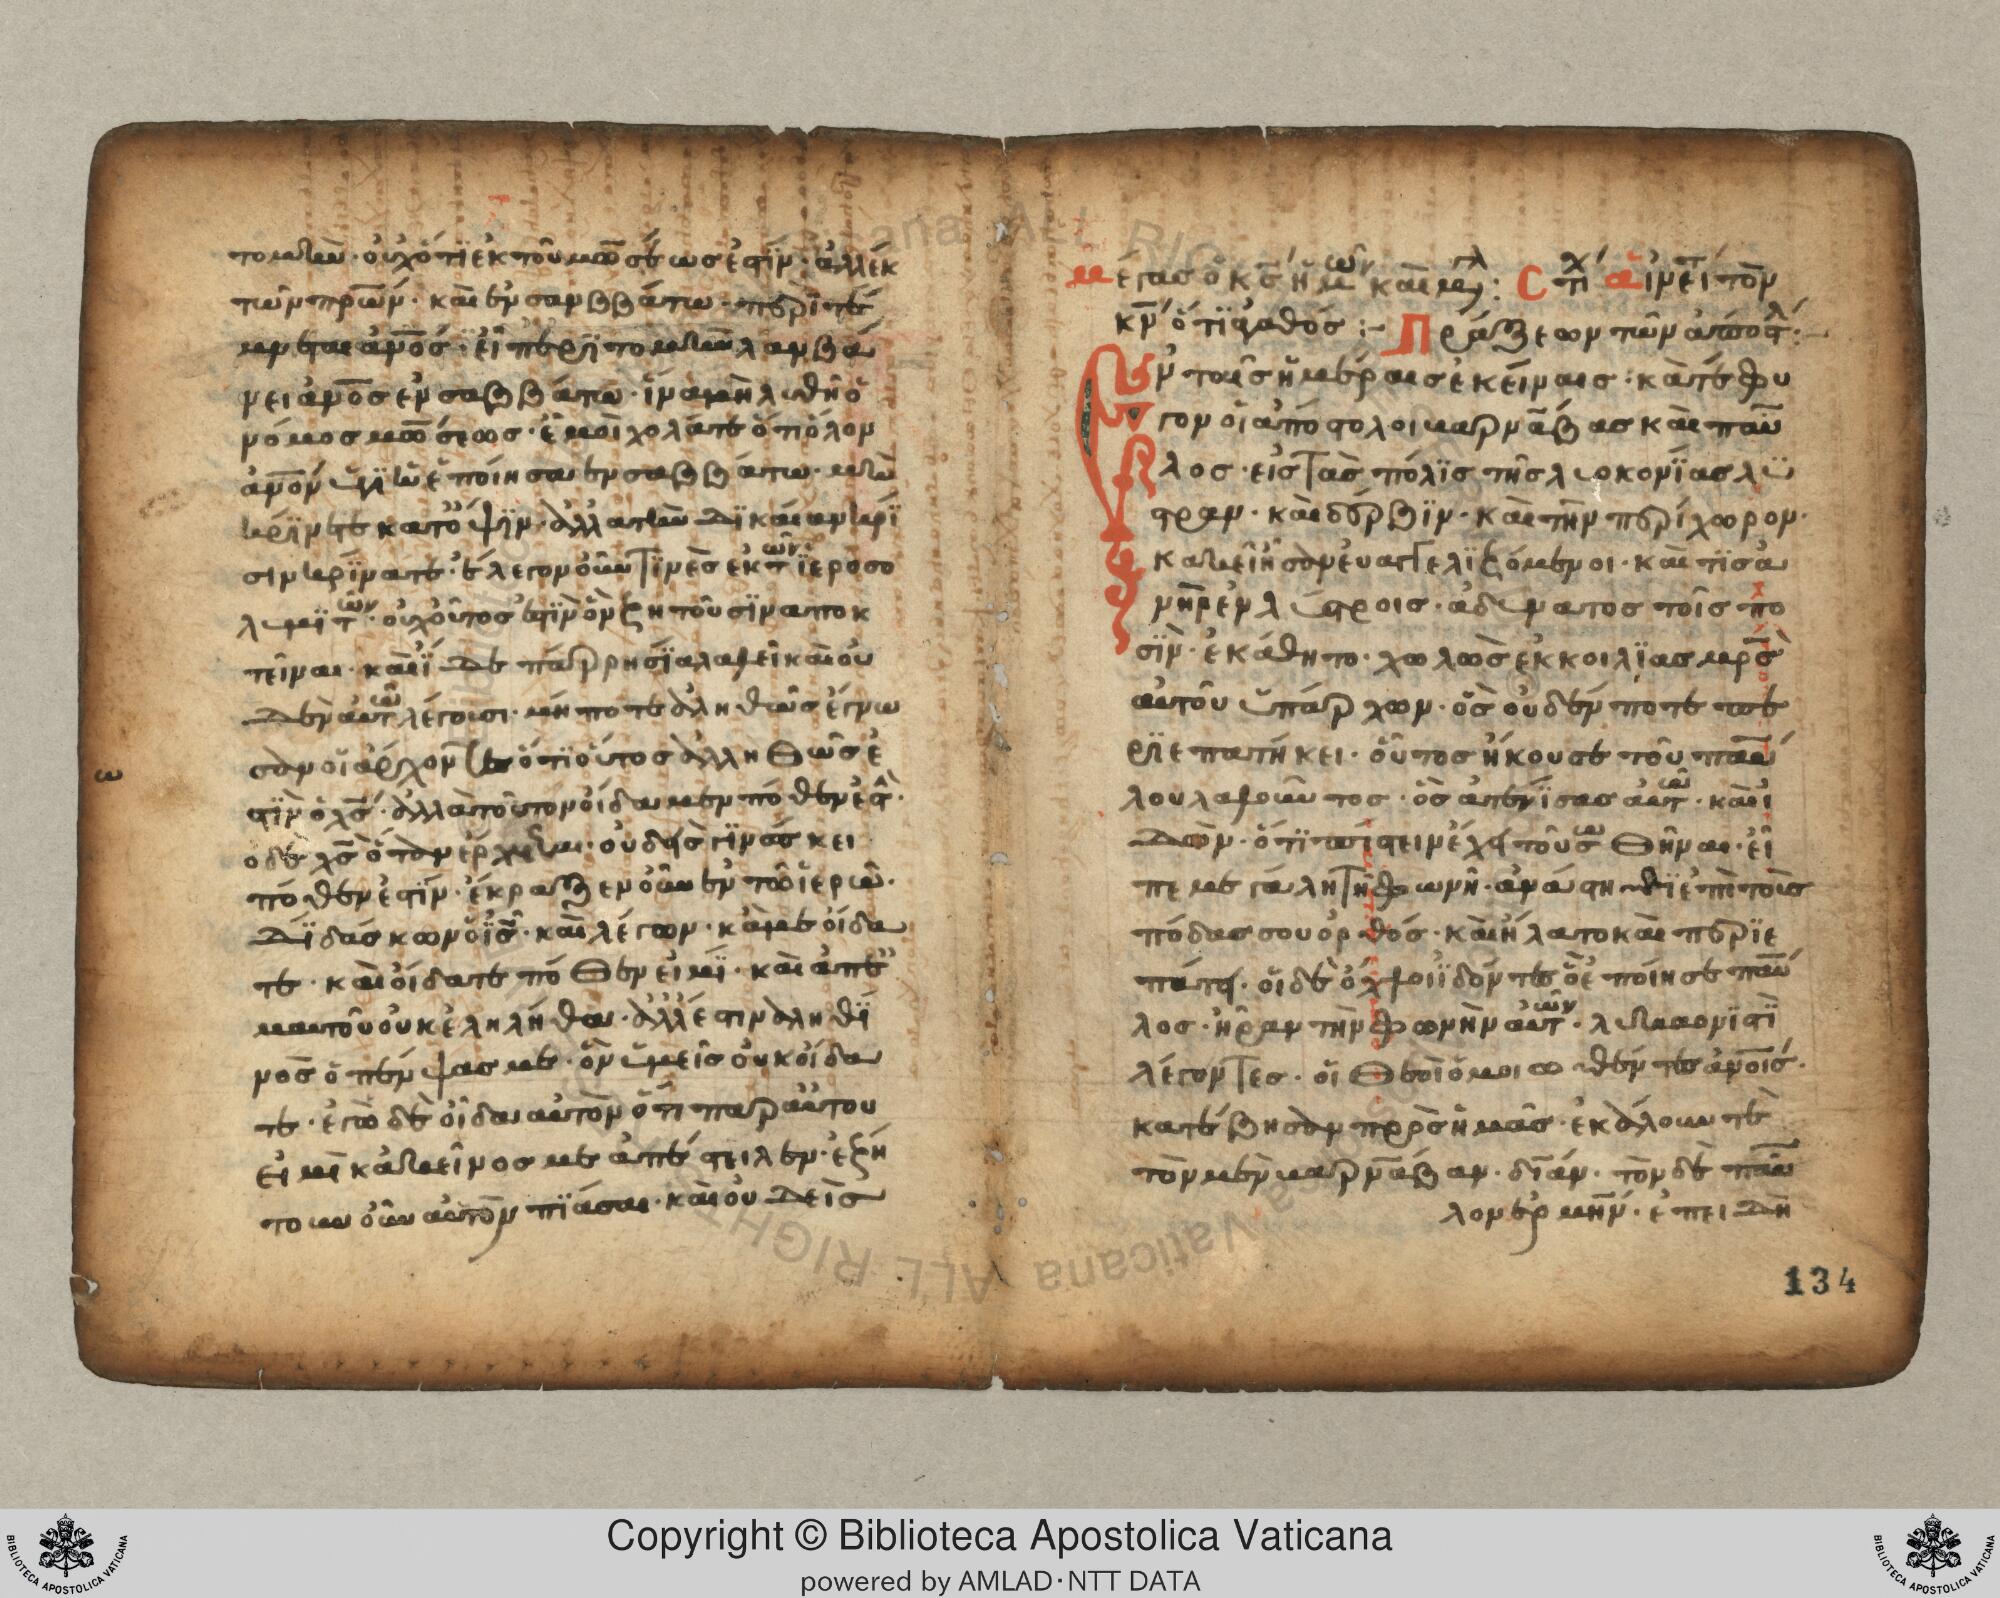 τομὴν· οὐχ ὅτι ἐκ τοῦ μωσέως ἐστὶν· ἀλλ ἐκ
τῶν πρων· καὶ ἐν σαββάτω περι τέ
ανος· εἰ περι τομὴν λαμβά
νει ανος ἐν σαββάτω· ἵνα μὴ λυθῆ ὁ
νόμος μωσέως· ἐμοὶ χολάτε ὅτι ὅλον
ανον ὑγιῆ ἐποίησα ἐν σαββάτω· μὴ
κρίνετε κατ ὄψιν· ἀλλὰ τὴν δικαίαν κρί
σιν κρίνατε· ἔλεγον οὖν τινὲς ἐκ των ἱεροσο
λυμιτων· οὐχ οὗτος ἐστὶν ὃν ζητοῦσιν αποκ
τεῖναι· καὶ ἴδε παρρησία λαλεῖ καὶ οὐ
δὲν αυτω λέγουσι· μήποτε ἀληθῶς ἔγνω
σαν οἱ ἄρχοντες ὅτι οὗτος ἀληθῶς ἐ
στὶν ὁ χς· ἀλλὰ τοῦτον οἴδαμεν πόθεν ἐστ·
ὁ δὲ χς ὅταν ἔρχηται· οὐδεὶς γινώσκει
πόθεν ἐστίν· ἔκραξεν οὖν ἐν τῶ ἱερῶ·
διδάσκων ὁ ις· καὶ λέγων· κἀμὲ οἴδα
τε· καὶ οἴδατε πόθεν εἰμί· καὶ ἀπ ἐ
μαυτοῦ οὐκ ἐληλήθα· ἀλλ ἔστιν ἀληθι
νὸς ὁ πέμψας με· ὃν ὑμεῖς οὐκ οἴδα
τε· ἐγὼ δὲ οἶδα αὐτὸν ὅτι παρ αὐτου
εἰμὶ κἀκεῖνος με ἀπέστειλεν· ἐζή
τουν οὖν αὐτὸν πιάσαι· καὶ οὐδεὶς
μέγας ὁ κς ἡμων καὶ Στιχ αἰνεῖτε τὸν
κν ὅτι ἀγαθός :- Πράξεων τῶν ἀποστλ :-
Ἐν ταῖς ἡμέραις ἐκείναις· κατέφυ
γον οἱ ἀπόστολοι βαρνάβας καὶ παῦ
λος· εἰς τὰς πόλις τῆς λυκονίας λύ
στραν· καὶ δέρβιν· καὶ τὴν περίχωρον·
κακεῖ ἦσαν εὐαγγελιζόμενοι· καὶ τις ἀ
νὴρ ἐν λύστροις· ἀδύνατος τοῖς πο
σὶν· ἐκάθητο· χωλὸς ἐκ κοιλίας μρς
αὐτοῦ ὑπάρχων· ὃς οὐδέν ποτε πε
ριεπατήκει· οὗτος ἤκουσε τοῦ παύ
λου λαλοῦντος· ὃς ἀτενίσας αὐτω· καὶ ἰ
δὼν· ὅτι πίστιν ἔχει τοῦ σωθῆναι· εἶ
πε μεγάλη τῆ φωνῆ· ἀνάστηθι ἐπὶ τοὺς
πόδας σου ὀρθός· καὶ ἥλατο καὶ περιε
πάτει· οἱ δὲ ὄχλοι ἰδόντες ὃ ἐποίησε παῦ
λος· ἦραν τὴν φωνὴν αὐτων· λυκαονιστὶ
λέγοντες· οἱ θεοὶ ὁμοιωθέντες ἀνοις·
κατέβησαν πρὸς ἡμᾶς· ἐκάλουν τὲ
τὸν μὲν βαρνάβαν· δίαν· τὸν δὲ παῦ
λον ἐρμὴν· ἐπειδὴ
134
Copyright © Biblioteca Apostolica Vaticana
powered by AMLAD·NTT DATA